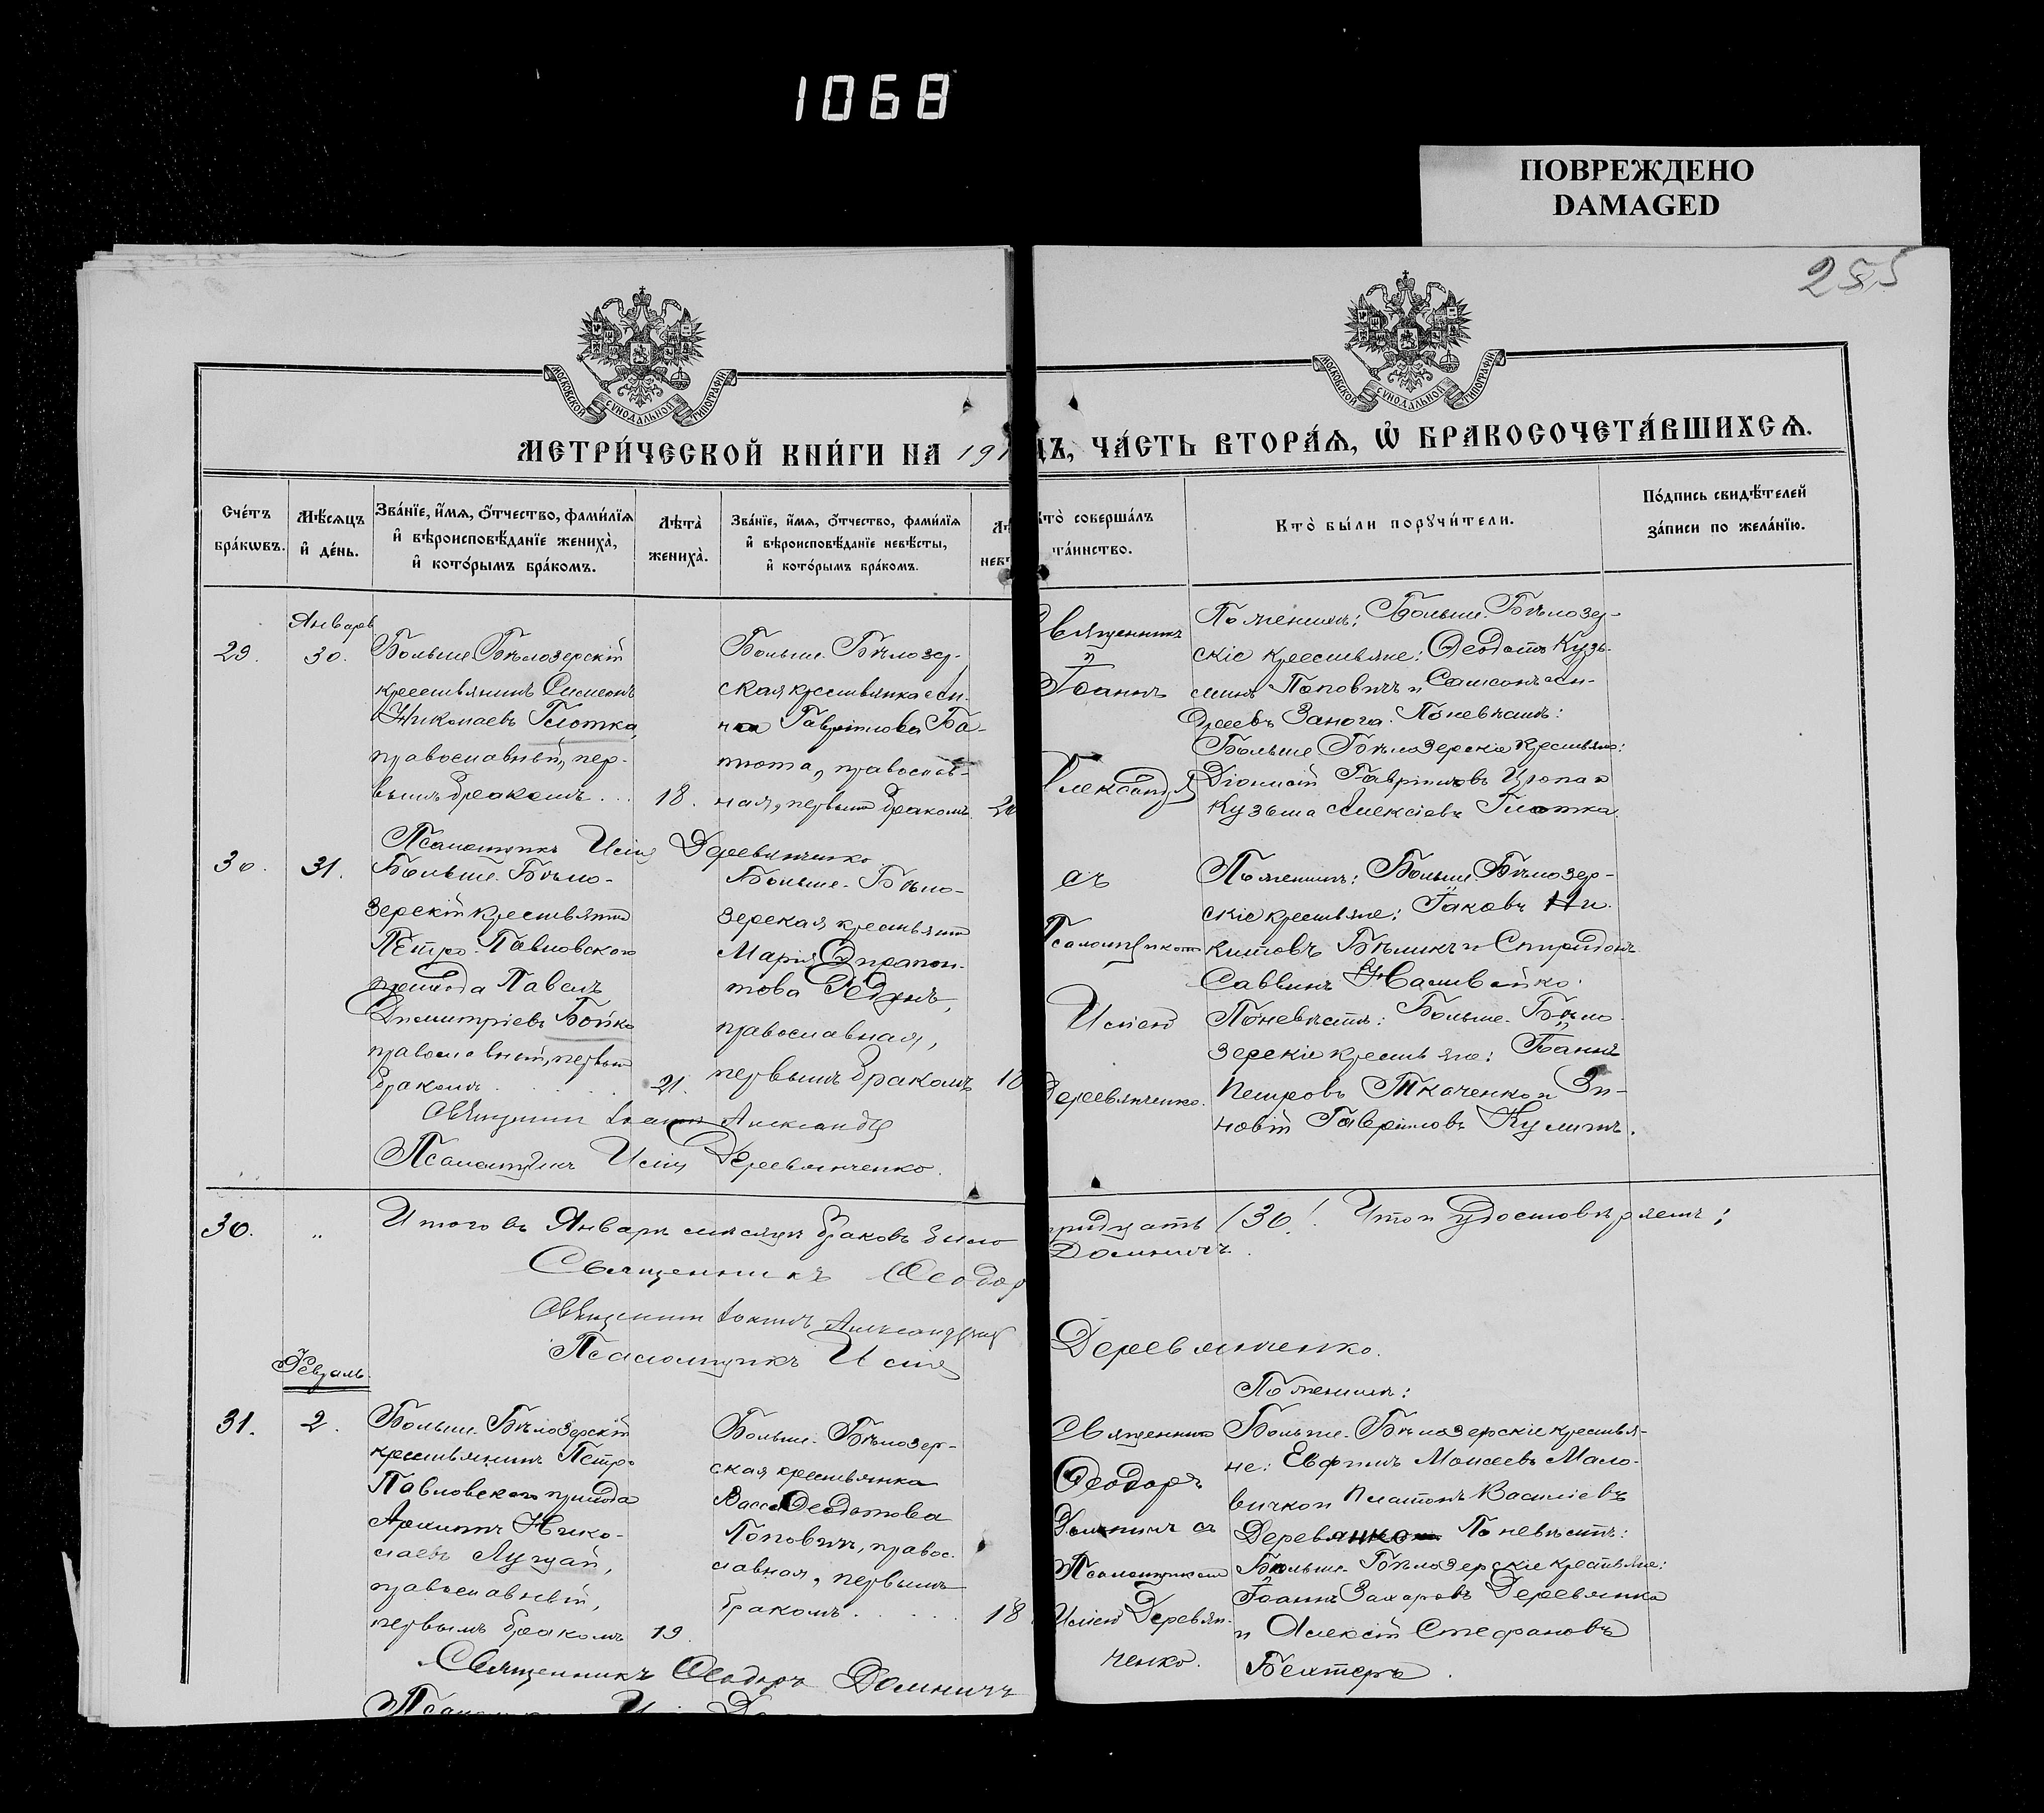 1068
ПОВРЕЖДЕНО
DAMAGED
255
МОСКОВСКОЙ СУНОДАЛЬНОЙ ТИПОГРАФІИ
МОСКОВСКОЙ СУНОДАЛЬНОЙ ТИПОГРАФІИ
МЕТРИ́ЧЕСКОЙ КНИ́ГИ НА 191
ДЪ, ЧА́СТЬ ВТОРА́Я, Ѽ БРАКОСОЧЕТА́ВШИХСЯ.
Сче́тъ
бра́кѡвъ.
Мѣ́сяцъ
и҆ де́нь.
Зва́нїе, и҆́мя, ѻ҆́тчество, фами́лїя
и҆ вѣроисповѣ́данїе жениха̀,
и҆ кото́рымъ бра́комъ.
Лѣта̀
жениха̀.
Зва́нїе, и҆́мя, ѻ҆́тчество, фами́лїя
и҆ вѣроисповѣ́данїе невѣ́сты,
и҆ кото́рымъ бра́комъ.
Лѣ
невѣ
Кто̀ соверша́лъ
та́инство.
Кто̀ бы́ли порꙋчи́тели.
По́дпись свидѣ́телей
за́писи по жела́нїю.
Январь
29.
30.
Больше-Бѣлозерскій
крестьянинъ Симеонъ
Николаевъ Глотка,
православный, пер-
вымъ бракомъ...
18.
Больше-Бѣлозер-
ская крестьянка
Гавріилова Ба-
православ-
ная, первымъ бракомъ
20
Священникъ
Іоаннъ
Александр
По женихѣ: Больше-Бѣлозер-
скіе крестьяне: Ѳеодотъ Кузь-
минъ Поповичъ и Самсонъ Ан-
дреевъ Занога. По невѣстѣ:
Больше-Бѣлозерскіе крестьяне:
Діонисій Гавріиловъ Цюпа и
Кузьма Алексіевъ Глотка.
Псаломщикъ Исаія Деревянченко
30.
31.
Больше-Бѣло-
зерскій крестьянинъ
Петро-Павловскаго
прихода Павелъ
Димитріевъ Бойко
православный, первымъ
бракомъ.....
21.
Больше-Бѣло-
зерская крестьянка
Марія
православная,
первымъ бракомъ
18
съ
Псаломщикомъ
Исаіею
Деревянченко.
По женихѣ: Больше-Бѣлозер-
скіе крестьяне: Іаковъ Ни-
китовъ Бѣликъ и Спиридонъ
Саввинъ Наливайко.
По невѣстѣ: Больше-Бѣло-
зерскіе крестьяне: Іоаннъ
Петровъ Ткаченко и Зи-
новій Гавріиловъ Кулишъ.
Священникъ Іоаннъ Александр
Псаломщикъ Исаія Деревянченко.
30.
"
Итого въ Январѣ мѣсяцѣ браковъ было
тридцать /30/. Что и удостовѣряемъ:
Священникъ Ѳеодоръ
Домничъ.
Священникъ Іоаннъ
Псаломщикъ Исаія
Деревянченко.
Февраль.
31.
2.
Больше-Бѣлозерскій
крестьянинъ Петро-
Павловскаго прихода
Архипъ Нико-
лаевъ Лугай,
православный,
первымъ бракомъ
19.
Больше-Бѣлозер-
ская крестьянка
Васса Ѳеодотова
Поповичъ, право-
славная, первымъ
бракомъ.....
18
Священникъ
Ѳеодоръ
Домничъ съ
Псаломщикомъ
Исаіею Деревян-
ченко.
По женихѣ:
Больше-Бѣлозерскіе крестья-
не: Евфимъ Моисеевъ Мало-
вичко и Платонъ Василіевъ
Деревянко. По невѣстѣ:
Больше-Бѣлозерскіе крестьяне:
Іоаннъ Захаровъ Деревянко
и Алексій Стефановъ
Бехтеръ.
Священникъ Ѳеодоръ Домничъ